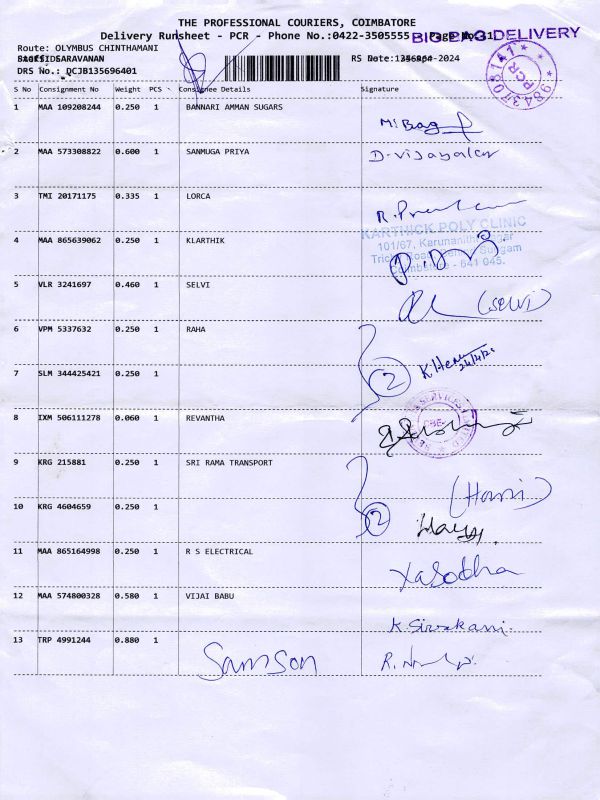 THE PROFESSIONAL COURIERS, COIMBATORE
Delivery Runsheet - PCR - Phone No.:0422-3505555 Page No:1
DELIVERY
Route: OLYMBUS CHINTHAMANI
SARAVANAN
RS Date: -2024
DRS No.: QCJB135696401
984370 PCR
S No Consignment No Weight PCS Consignee Details Signature
1 MAA 109208244 0.250 1 BANNARI AMMAN SUGARS
2 MAA 573308822 0.600 1 SANMUGA PRIYA
3 TMI 20171175 0.335 1 LORCA
KARTHICK POLY CLINIC
4 MAA 865639062 0.250 1 KLARTHIK
101/67, Karunanithi Nagar
Coimbatore - 641 045.
5 VLR 3241697 0.460 1 SELVI (Selvi)
6 VPM 5337632 0.250 1 RAHA
7 SLM 344425421 0.250 1 2
8 IXM 506111278 0.060 1 REVANTHA
9 KRG 215881 0.250 1 SRI RAMA TRANSPORT
10 KRG 4604659 0.250 1 2
11 MAA 865164998 0.250 1 R S ELECTRICAL
Yasodha
12 MAA 574800328 0.580 1 VIJAI BABU
K. Sivakani.
13 TRP 4991244 0.880 1
Samson